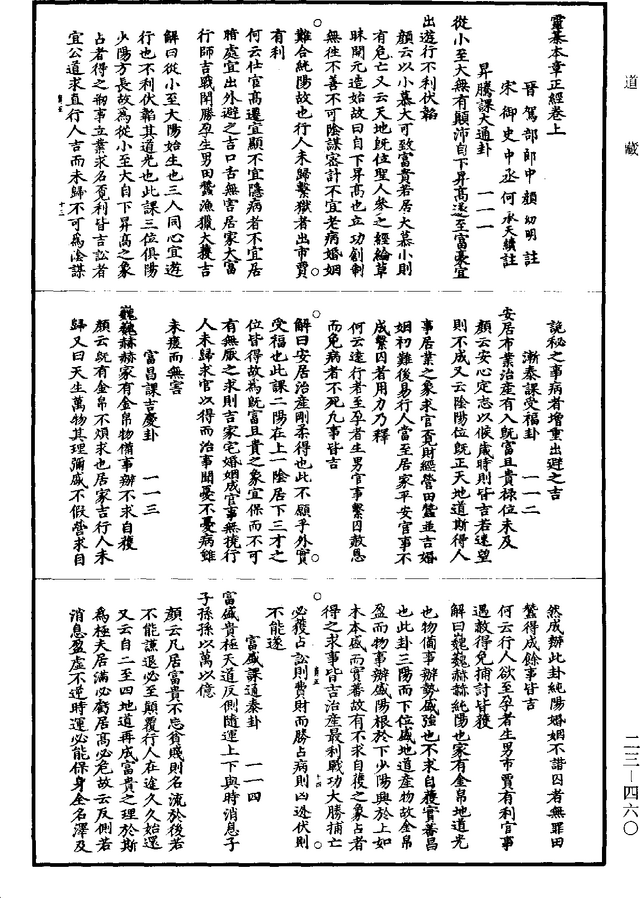 道藏
靈棊本章正經卷上
晉駕部郎中顏幼明註
宋御史中丞何承天續註
昇騰課大通卦 一一一
從小至大無有顛沛自下昇高遂至富豪宜
出遊行不利伏韜
顏云以小慕大可致富貴若居大慕小則
有危亡又云天地既位聖人參之經綸草
昧開元造始故曰自下昇高也立功創制
無往不善不可陰謀密計不宜老病婚姻
難合純陽故也行人未歸繫獄者出市賈
有利
何云仕宦高遷宜顯不宜隱病者不宜居
暗處宜出外避之吉口舌無害居家大富
行師吉戰鬭勝孕生男田蠶漁獵大獲吉
解曰從小至大陽始生也三人同心宜遊
行也不利伏韜其道光也此課三位俱陽
少陽方長故為從小至大自下昇高之象
占者得之剏事立業求名覓利皆吉訟者
宜公道求直行人吉而未歸不可為陰謀
詭秘之事病者增重出避之吉
漸泰課受福卦 一一二
安居布業治產有入既富且貴祿位未及
顏云安心定志以候歲時則皆吉若速望
則不成又云陰陽位既正天地道斯得人
事居業之象求官覓財經營田蠶並吉婚
姻初難後易行人當至居家平安官事不
成繫囚者用力乃釋
何云遠行者至孕者生男官事繫囚赦恩
而免病者不死凡事皆吉
解曰安居治產剛柔得也此不願乎外實
受福也此課二陽在上一陰居下三才之
位皆得故為既富且貴之象宜保而不可
有無厭之求則吉家宅婚姻成官事無撓行
人未歸求官以得而治事聞憂不憂病雖
未痊而無害
富昌課吉慶卦 一一三
巍巍赫赫家有金帛物備事辦不求自獲
顏云既有金帛不煩求也居家吉行人未
歸又曰天生萬物其理彌盛不假營求自
然成辦此卦純陽婚姻不諧囚者無罪田
蠶得成餘事皆吉
何云行人欲至孕者生男市賈有利官事
遇赦得免捕討皆獲
解曰巍巍赫赫純陽也家有金帛地道光
也物備事辦勢盛強也不求自獲實蕃昌
也此卦三陽而下位盛地道產物故金帛
盈而物事辦盛陽根於下少陽興於上如
木本盛而實蕃故有不求自獲之象占者
得之求事皆吉治產最利戰功大勝捕亡
必獲占訟則費財而勝占病則凶逃伏則
不能遂
富盛課道泰卦 一一四
富盛貴極天道反側隨運上下與時消息子
子孫孫以萬以億
顏云凡居富貴不忘貧賤則名流於後若
不能謙退必至顛覆行人在途久久始還
又云自二至四地道再成富貴之理於斯
為極夫居滿必虧居高必危故云反側若
消息盈虛不逆時運必能保身全名澤及
二三—四六〇